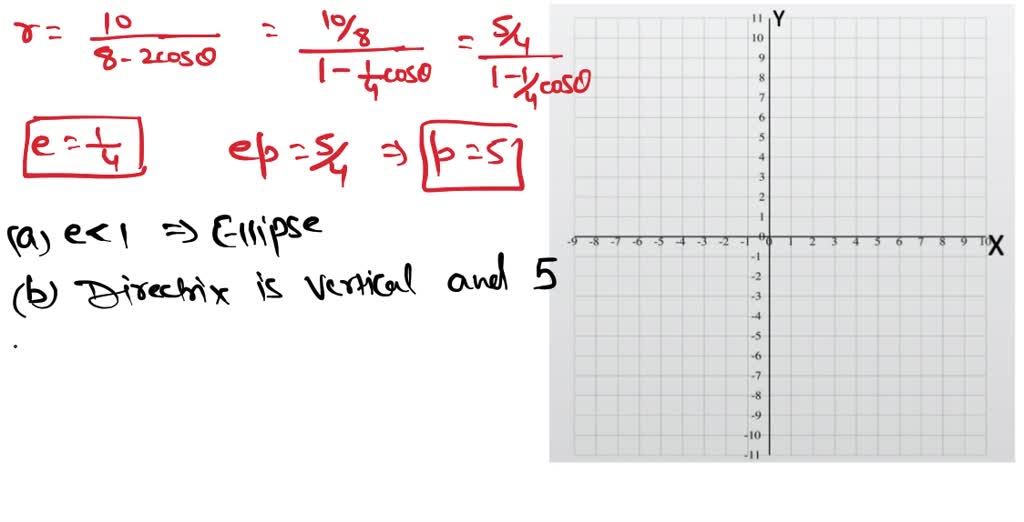 r = 10/(8 - 2cosθ) = (10/8)/(1 - 1/4 cosθ) = (5/4)/(1 - 1/4 cosθ)
e = 1/4 ep = 5/4 ⇒ p = 5
(a) e < 1 ⇒ Ellipse
(b) Directrix is vertical and 5
Y
11
10
9
8
7
6
5
4
3
2
1
0
-9 -8 -7 -6 -5 -4 -3 -2 -1 0 1 2 3 4 5 6 7 8 9 10 X
-1
-2
-3
-4
-5
-6
-7
-8
-9
-10
-11